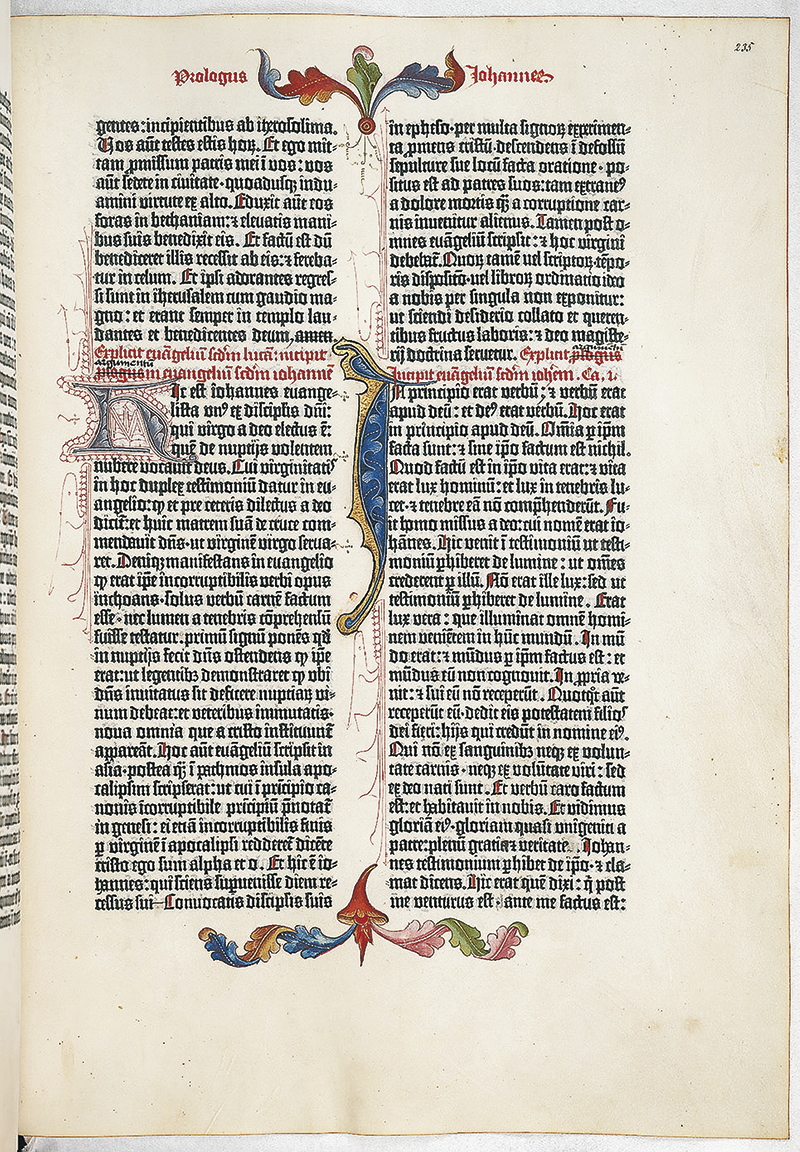 235
Prologus
Johannes
gentes: incipientibus ab iherosolima.
Vos aūt testes estis hoꝝ. Et ego mit-
tam ꝓmissum patris mei ī vos: vos
aūt sedete in civitate · quoadusqꝫ indu-
amini virtute ex alto. Eduxit aūt eos
foras in bethaniam: ⁊ elevatis mani-
bus suis benedixit eis. Et factū est dū
benediceret illis recessit ab eis: ⁊ fereba-
tur in celum. Et ipsi adorantes regres-
si sunt in iherusalem cum gaudio ma-
gno: et erant semper in templo lau-
dantes et benedicentes deum, amen.
Explicit euāgeliū scd̄m lucā: incipit
argumentū
prologus in euangeliū scd̄m iohannē
Hic est iohannes euange-
lista vnꝰ ex discipľis dn̄i:
qui virgo a deo electus ē:
quē de nuptijs volentem
nubere vocauit deus. Cui virginitatꝭ
in hoc duplex testimoniū datur in eu-
angelio: ꝙ et pre ceteris dilectus a deo
dicit̄: et huic matrem suā de cruce com-
mendauit dn̄s · ut virginē virgo serua-
ret. Deniqꝫ manifestans in euangelio
ꝙ erat ip̄e incorruptibilis verbi opus
inchoans · solus verbū carnē factum
esse · nec lumen a tenebris cōprehensū
fuisse testatur. primū signū ponēs qd̄
in nuptijs fecit dn̄s ostendens ꝙ ip̄e
erat: ut legentibꝫ demonstraret ꝙ ubi
dn̄s inuitatus sit deficere nuptiaꝝ vi-
num debeat: et veteribus immutatis ·
noua omnia que a cristo instituunt̄
appareāt. Hoc aūt euāgeliū scripsit in
asia · postea qͣ ī pathmos insula apo-
calipsim scripserat: ut cui ī prīcipio ca-
nonis īcorruptibile prīcipiū p̄notat̄
in genesi: ei etiā incorruptibilis finis
ꝑ virginē ī apocalipsi redderet̄ dicēte
cristo ego sum alpha et o. Et hic ē io-
hannes: qui sciens suꝑuenisse diem re-
cessus sui Conuocatis discipľis suis
in epheso · per multa signoꝝ experimen-
ta ꝓmens cristū · descendens ī defossū
sepulture sue locū facta oratione · po-
situs est ad patres suos: tam extraneꝰ
a dolore mortis qͣ a corruptione car-
nis inuenitur alienus. Tamen post o-
mnes euāgeliū scripsit: ⁊ hoc virgini
debebat̄. Quoꝝ tamē vel scriptoꝝ tēpo-
ris dispositio · uel libroꝝ ordinatio ideo
a nobis per singula non exponitur:
ut sciendi desiderio collato et queren-
tibus fructus laboris: ⁊ deo magiste-
rij doctrina seruetur. Explicit prologus
argumentū
Incipit euāgeliū scd̄m ioh̄em. Ca. i.
In principio erat verbū: ⁊ verbū erat
apud deū: et deꝰ erat verbū. Hoc erat
in principio apud deū. Om̄ia ꝑ ip̄m
facta sunt: ⁊ sine ip̄o factum est nichil.
Quod factū est in ip̄o vita erat: ⁊ vita
erat lux hominū: et lux in tenebris lu-
cet · ⁊ tenebre eā nō comp̄henderūt. Fu-
it homo missus a deo: cui nomē erat io-
hānes. Hic venit ī testimoniū ut testi-
moniū ꝑhiberet de lumine: ut om̄es
crederent ꝑ illū. Nō erat ille lux: sed ut
testimoniū ꝑhiberet de lumine. Erat
lux vera: que illuminat omnē homi-
nem veniētem in hūc mundū. In mū-
do erat: ⁊ mūdus ꝑ ip̄m factus est: et
mūdus eū non cognouit. In ꝓpria ve-
nit: ⁊ sui eū nō receperūt. Quotqͦt aūt
receperūt eū · dedit eis potestatem filioꝭ
dei fieri: hijs qui credūt in nomine eiꝰ.
Qui nō ex sanguinibꝫ neqꝫ ex volun-
tate carnis · neqꝫ ex volūtate viri: sed
ex deo nati sunt. Et verbū caro factum
est: et habitauit in nobis. Et vidimus
gloriā eiꝰ · gloriam quasi vnigeniti a
patre: plenū gratia ⁊ veritate. Johan-
nes testimonium ꝑhibet de ip̄o · ⁊ cla-
mat dicens. Hic erat quē dixi: qͥ post
me venturus est · ante me factus est: